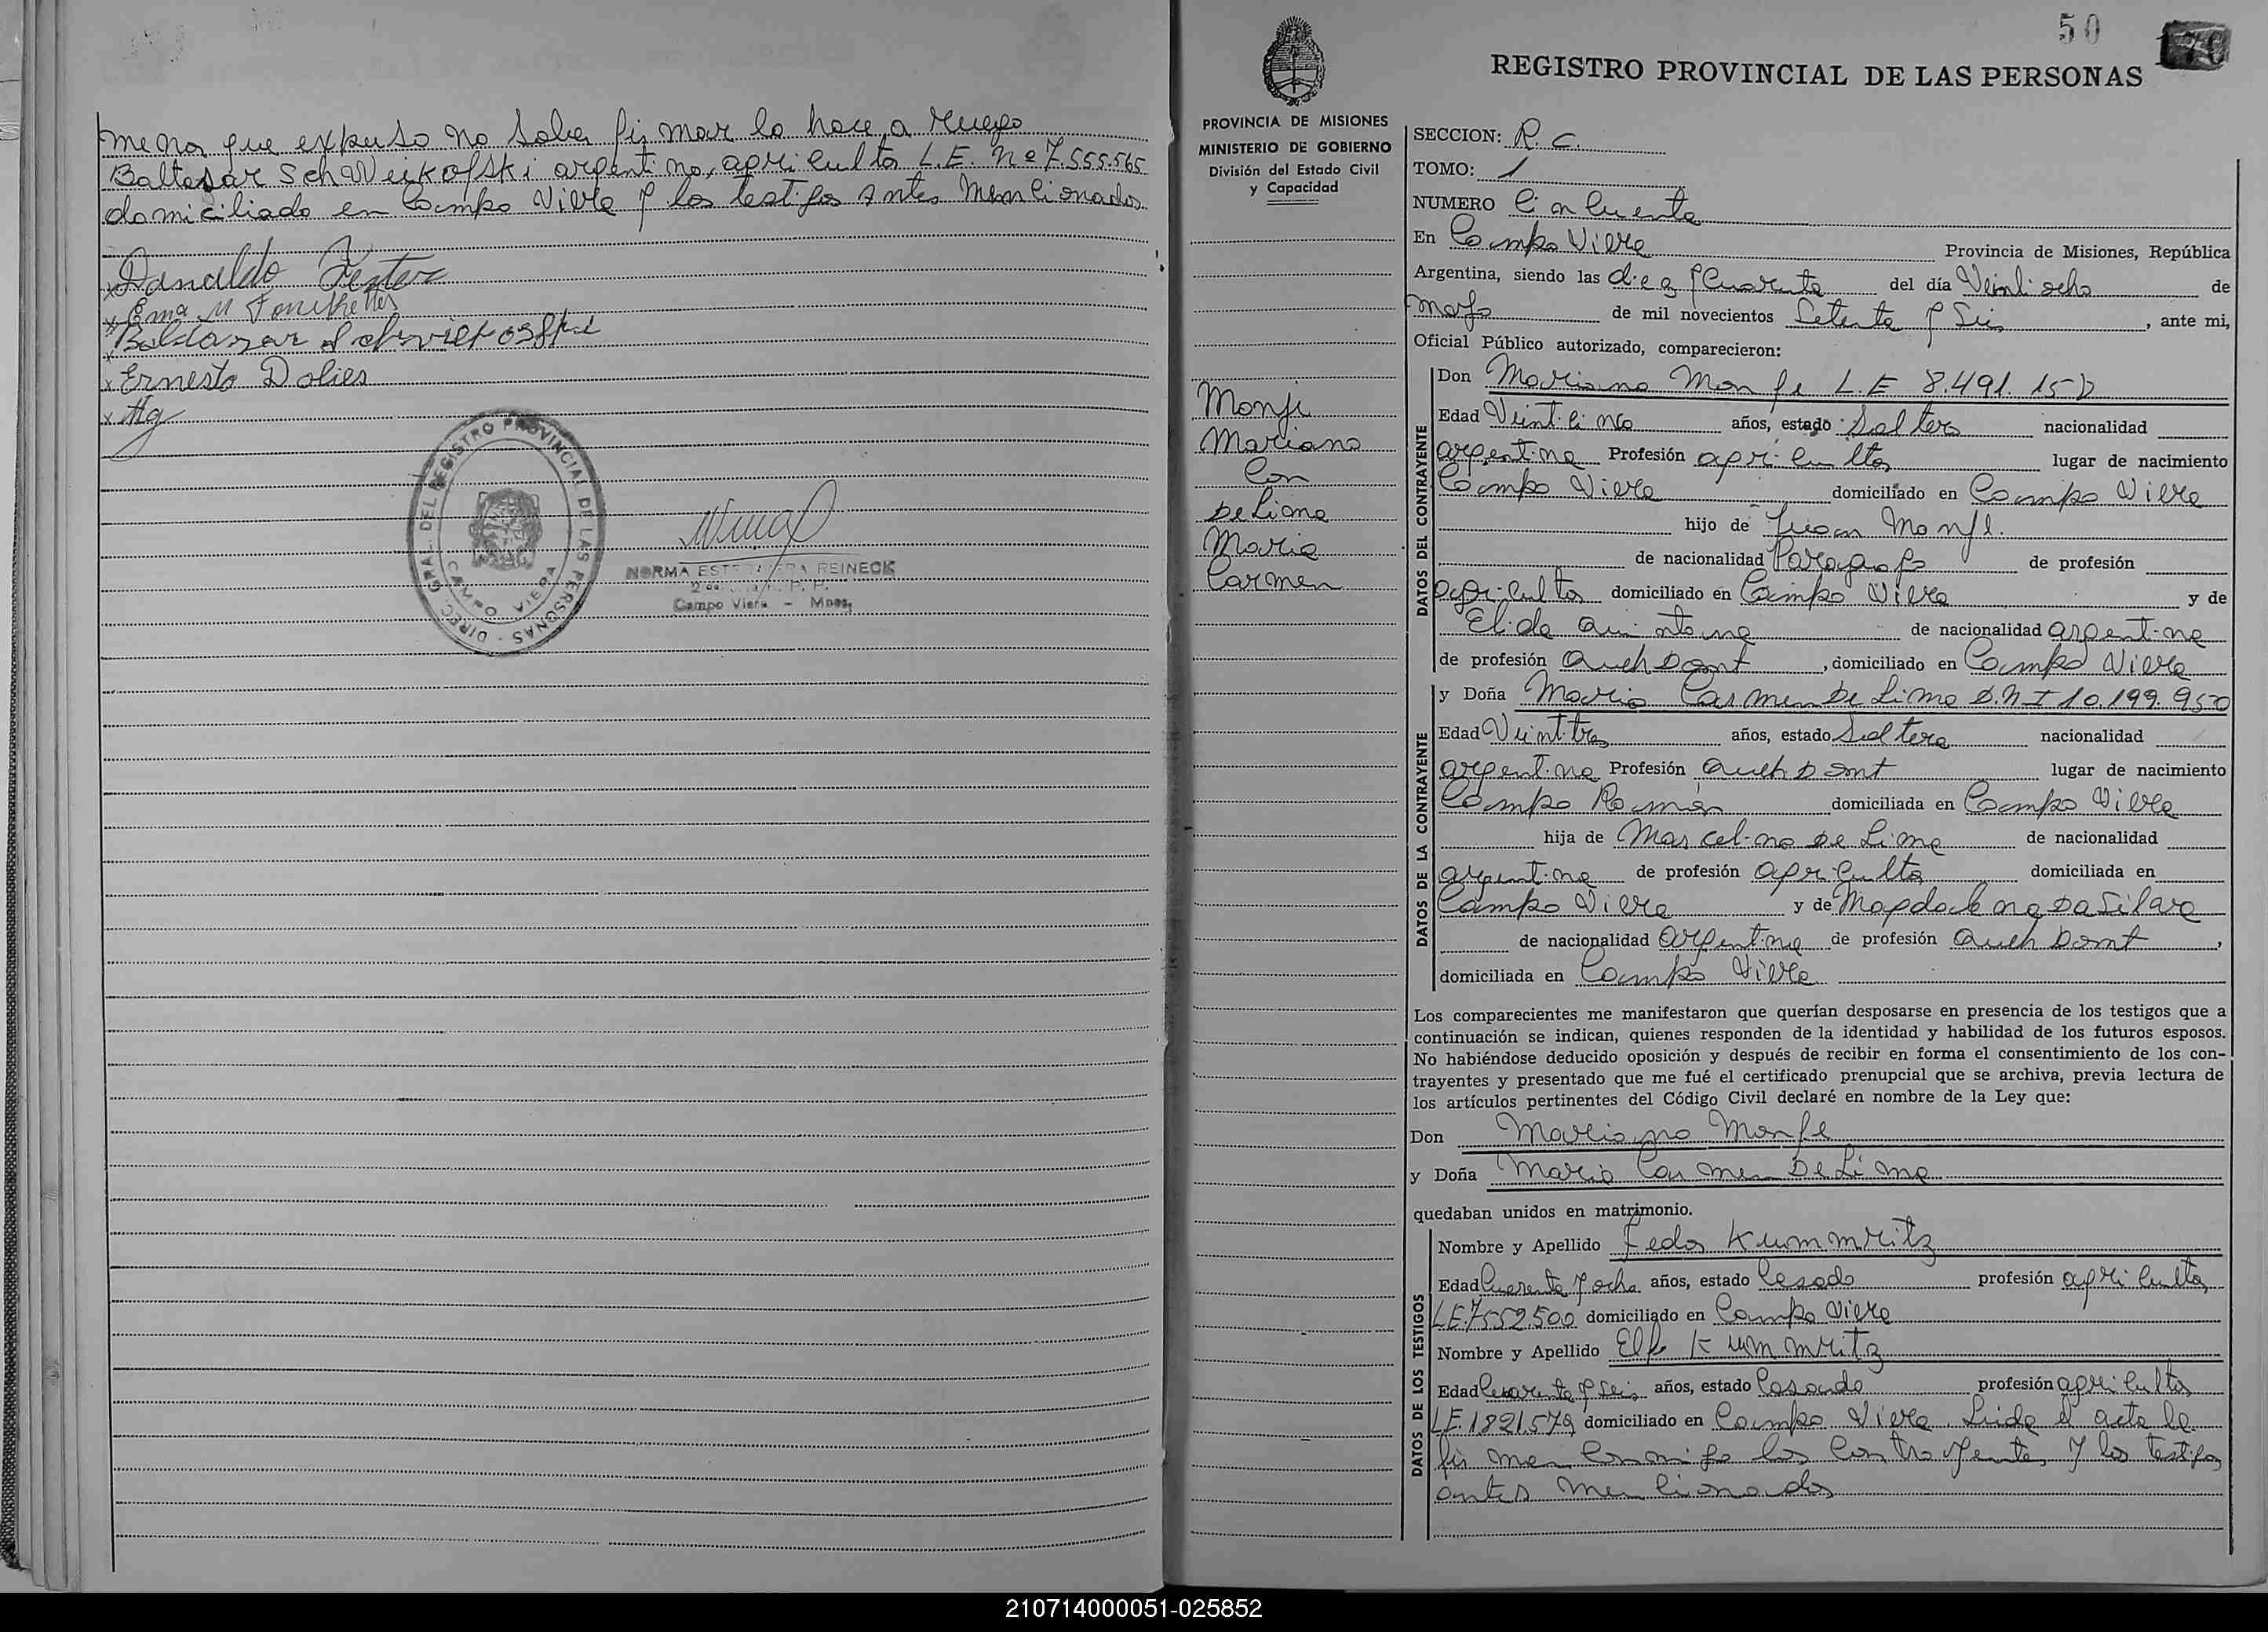 menor que expuso no saber firmar lo hace a ruego
Baltasar Schweikofski argentino, agricultor L.E. Nº 7.555.565
domiciliado en Campo Viera y los testigos antes mencionados
Ernesto Dolies
DIREC. GRAL. DEL REGISTRO PROVINCIAL DE LAS PERSONAS
CAMPO VIERA
NORMA REINECK
Campo Viera - Mnes.
50
REGISTRO PROVINCIAL DE LAS PERSONAS
PROVINCIA DE MISIONES
MINISTERIO DE GOBIERNO
División del Estado Civil
y Capacidad
Monje
Mariano
Con
De Lima
Maria
Carmen
SECCION: R. C.
TOMO: 1
NUMERO Cincuenta
En Campo Viera Provincia de Misiones, República
Argentina, siendo las diez y Cuarenta del día Veintiocho de
mayo de mil novecientos Setenta y Seis, ante mi,
Oficial Público autorizado, comparecieron:
DATOS DEL CONTRAYENTE
Don Mariano Monje L.E 8.491.
Edad Veinticinco años, estado Soltero nacionalidad
argentina Profesión agricultor lugar de nacimiento
Campo Viera domiciliado en Campo Viera
hijo de Juan Monje.
de nacionalidad Paraguayo de profesión
agricultor domiciliado en Campo Viera y de
Elida Quintana de nacionalidad argentina
de profesión Queh Domt, domiciliado en Campo Viera
DATOS DE LA CONTRAYENTE
y Doña Maria Carmen De Lima D.N.I 10.199.950
Edad Veintitres años, estado Soltera nacionalidad
argentina Profesión Queh Domt lugar de nacimiento
Campo Ramón domiciliada en Campo Viera
hija de Marcelino De Lima de nacionalidad
argentina de profesión agricultor domiciliada en
Campo Viera y de Magdalena Da Silva
de nacionalidad argentina de profesión Queh Domt,
domiciliada en Campo Viera
Los comparecientes me manifestaron que querían desposarse en presencia de los testigos que a
continuación se indican, quienes responden de la identidad y habilidad de los futuros esposos.
No habiéndose deducido oposición y después de recibir en forma el consentimiento de los con-
trayentes y presentado que me fué el certificado prenupcial que se archiva, previa lectura de
los artículos pertinentes del Código Civil declaré en nombre de la Ley que:
Don Mariano Monje
y Doña Maria Carmen De Lima
quedaban unidos en matrimonio.
DATOS DE LOS TESTIGOS
Nombre y Apellido Fedor Kummritz
Edad Cuarenta y ocho años, estado Casado profesión agricultor
LE.7552.500 domiciliado en Campo Viera
Nombre y Apellido Kummritz
Edad Cuarenta y Seis años, estado Casado profesión agricultor
LE 1821.579 domiciliado en Campo Viera. Leida el acta la
firman conmigo los contrayentes y los testigos
antes mencionados
210714000051-025852